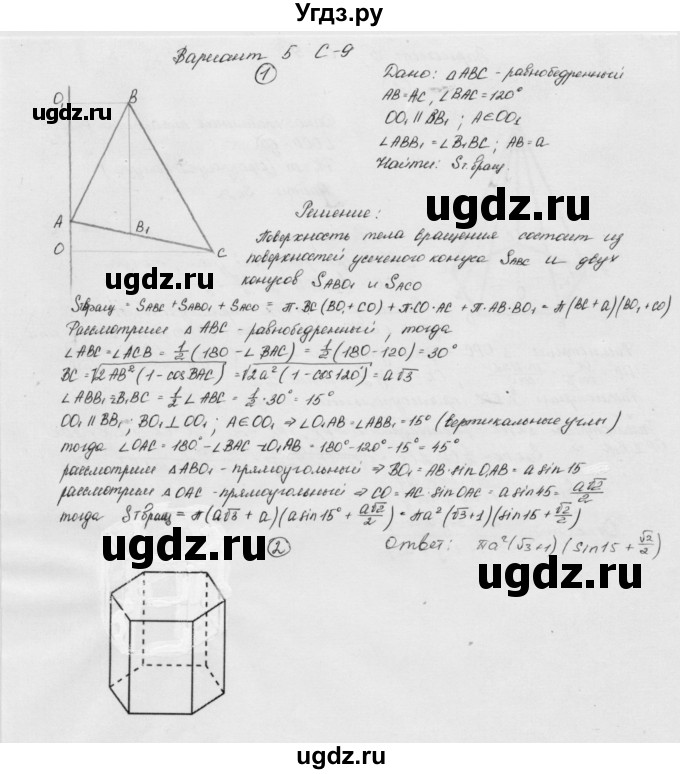 Угдз.ру
Вариант 5 С-9
1
Дано: △ABC - равнобедренный
AB=AC, ∠BAC=120°
OO₁ ∥ BB₁ ; A∈OO₁
∠ABB₁ = ∠B₁BC ; AB=a
Найти: Sт.вращ.
O₁
B
A
B₁
O
C
ugdz.ru
ugdz.ru
Решение:
Поверхность тела вращения состоит из
поверхностей усеченого конуса SABC и двух
конусов SABO₁ и SACO
Sт.вращ = SABC + SABO₁ + SACO = π·BC(BO₁+CO) + π·CO·AC + π·AB·BO₁ = π(BC+a)(BO₁+CO)
Рассмотрим △ ABC - равнобедренный, тогда
∠ABC=∠ACB = 1/2(180 - ∠BAC) = 1/2(180-120) = 30°
BC = √2AB²(1-cosBAC) = √2a²(1-cos120°) = a√3
∠ABB₁=B₁BC = 1/2∠ABC = 1/2·30° = 15°
OO₁ ∥ BB₁ ; BO₁⊥OO₁ ; A∈OO₁ ⇒ ∠O₁AB=∠ABB₁=15° (вертикальные углы)
тогда ∠OAC = 180° - ∠BAC - ∠O₁AB = 180° - 120° - 15° = 45°
рассмотрим △ABO₁ - прямоугольный ⇒ BO₁ = AB·sinO₁AB = a sin15
рассмотрим △OAC - прямоугольный ⇒ CO = AC·sinOAC = a sin45 = a√2/2
тогда Sт.вращ = π(a√3 + a)(a sin15° + a√2/2) = πa²(√3+1)(sin15 + √2/2)
ugdz.ru
2
Ответ: πa²(√3+1)(sin15 + √2/2)
ugdz.ru
ugdz.ru